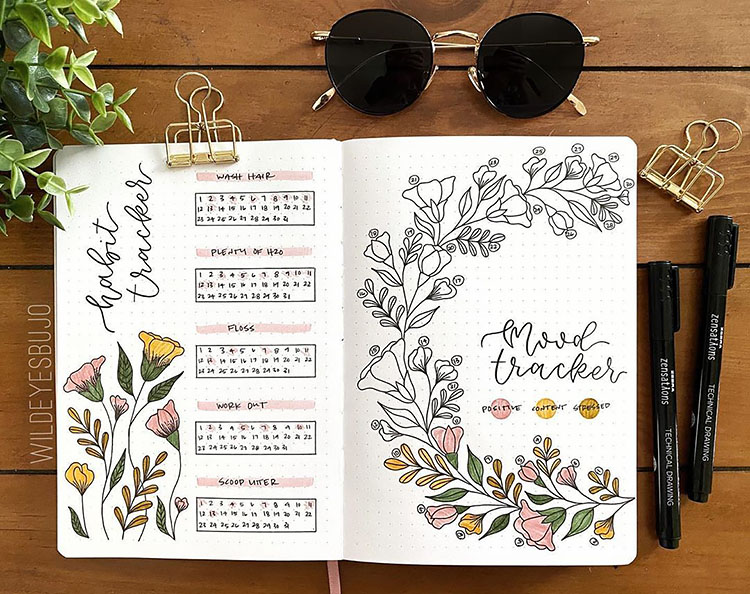 habit
tracker
WASH HAIR
1 2 3 4 5 6 7 8 9 10 11
12 13 14 15 16 17 18 19 20 21 22
23 24 25 26 27 28 29 30 31
PLENTY OF H2O
1 2 3 4 5 6 7 8 9 10 11
12 13 14 15 16 17 18 19 20 21 22
23 24 25 26 27 28 29 30 31
FLOSS
1 2 3 4 5 6 7 8 9 10 11
12 13 14 15 16 17 18 19 20 21 22
23 24 25 26 27 28 29 30 31
WORK OUT
1 2 3 4 5 6 7 8 9 10 11
12 13 14 15 16 17 18 19 20 21 22
23 24 25 26 27 28 29 30 31
SCOOP LITTER
1 2 3 4 5 6 7 8 9 10 11
12 13 14 15 16 17 18 19 20 21 22
23 24 25 26 27 28 29 30 31
Mood
tracker
POSITIVE CONTENT STRESSED
WILDEYESBUJO
ZEBRA
zensations
TECHNICAL DRAWING
ZEBRA
zensations
TECHNICAL DRAWING